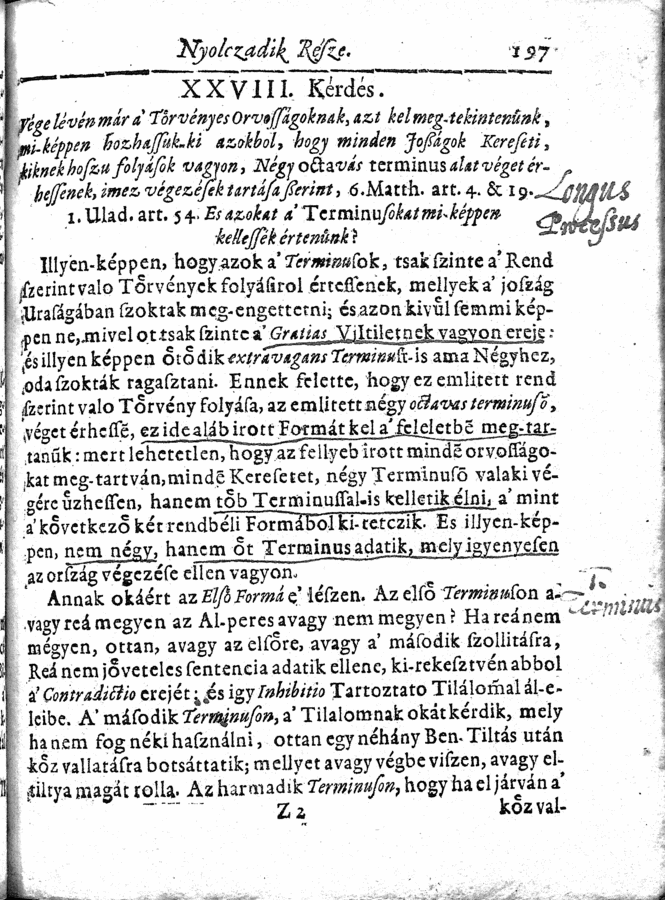 Nyolczadik Réſze. 197
XXVIII. Kérdés.
Vége lévén már a' Tőrvényes Orvoſſágoknak, azt kel meg-tekintenűnk,
mi-képpen hozhaſſuk-ki azokbol, hogy minden Joſságok Kereſeti,
kiknek hoſzu folyáſok vagyon, Négy octavás terminus alat véget ér-
heſſenek, imez végezéſek tartáſa ſzerint, 6. Matth. art. 4. & 19.
Longus
Proceſsus
1. Ulad. art. 54. Es azokat a' Terminuſokat mi-képpen
kelleſſék értenűnk?
Illyen-képpen, hogy azok a' Terminuſok, tsak ſzinte a' Rend
ſzerint valo Tőrvények folyáſirol érteſſenek, mellyek a' joſzág
Uraſágában ſzoktak meg-engettetni; és azon kivűl ſemmi kép-
pen ne, mivel ott tsak ſzinte a' Gratias Vjitiletnek vagyon ereje:
és illyen képpen őtődik extravagans Terminuſt-is ama Négyhez,
oda ſzokták ragaſztani. Ennek felette, hogy ez emlitett rend
ſzerint valo Tőrvény folyáſa, az emlitett négy octavas terminuſō,
véget érheſſē, ez ide aláb irott Formát kel a' feleletbē meg-tar-
tanűk: mert lehetetlen, hogy az fellyeb irott mindē orvoſſágo-
kat meg-tartván, mindē Kereſetet, négy Terminuſō valaki vé-
gére űzheſſen, hanem tőb Terminuſſal-is kelletik élni, a' mint
a' kővetkező két rendbéli Formábol ki-tetczik. Es illyen-kép-
pen, nem négy, hanem őt Terminus adatik, mely igyenyeſen
az orſzág végezéſe ellen vagyon.
Annak okáért az Elſő Forma e' léſzen. Az elſő Terminuſon a-
1. Terminus
vagy reá megyen az Al-peres avagy nem megyen? Ha reá nem
mégyen, ottan, avagy az elſőre, avagy a' máſodik ſzollitáſra,
Reá nem jőveteles ſentencia adatik ellene, ki-rekeſztvén abbol
a' Contradictio erejét; és igy Inhibitio Tartoztato Tilálom̄al ál-e-
leibe. A' máſodik Terminuſon, a' Tilalomnak okát kérdik, mely
ha nem fog néki haſználni, ottan egy néhány Ben-Tiltás után
kőz vallatáſra botsáttatik; mellyet avagy végbe viſzen, avagy el-
tiltya magát rolla. Az harmadik Terminuſon, hogy ha el járván a'
Z 2 kőz val-